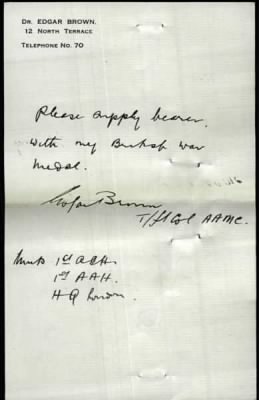 DR. EDGAR BROWN.
12 NORTH TERRACE
TELEPHONE NO. 70
Please supply bearer.
with my British war
medal.
Edgar Brown
T/Lt Col AAMC.
Units 1st ACH.
1st AAH.
H Q London.